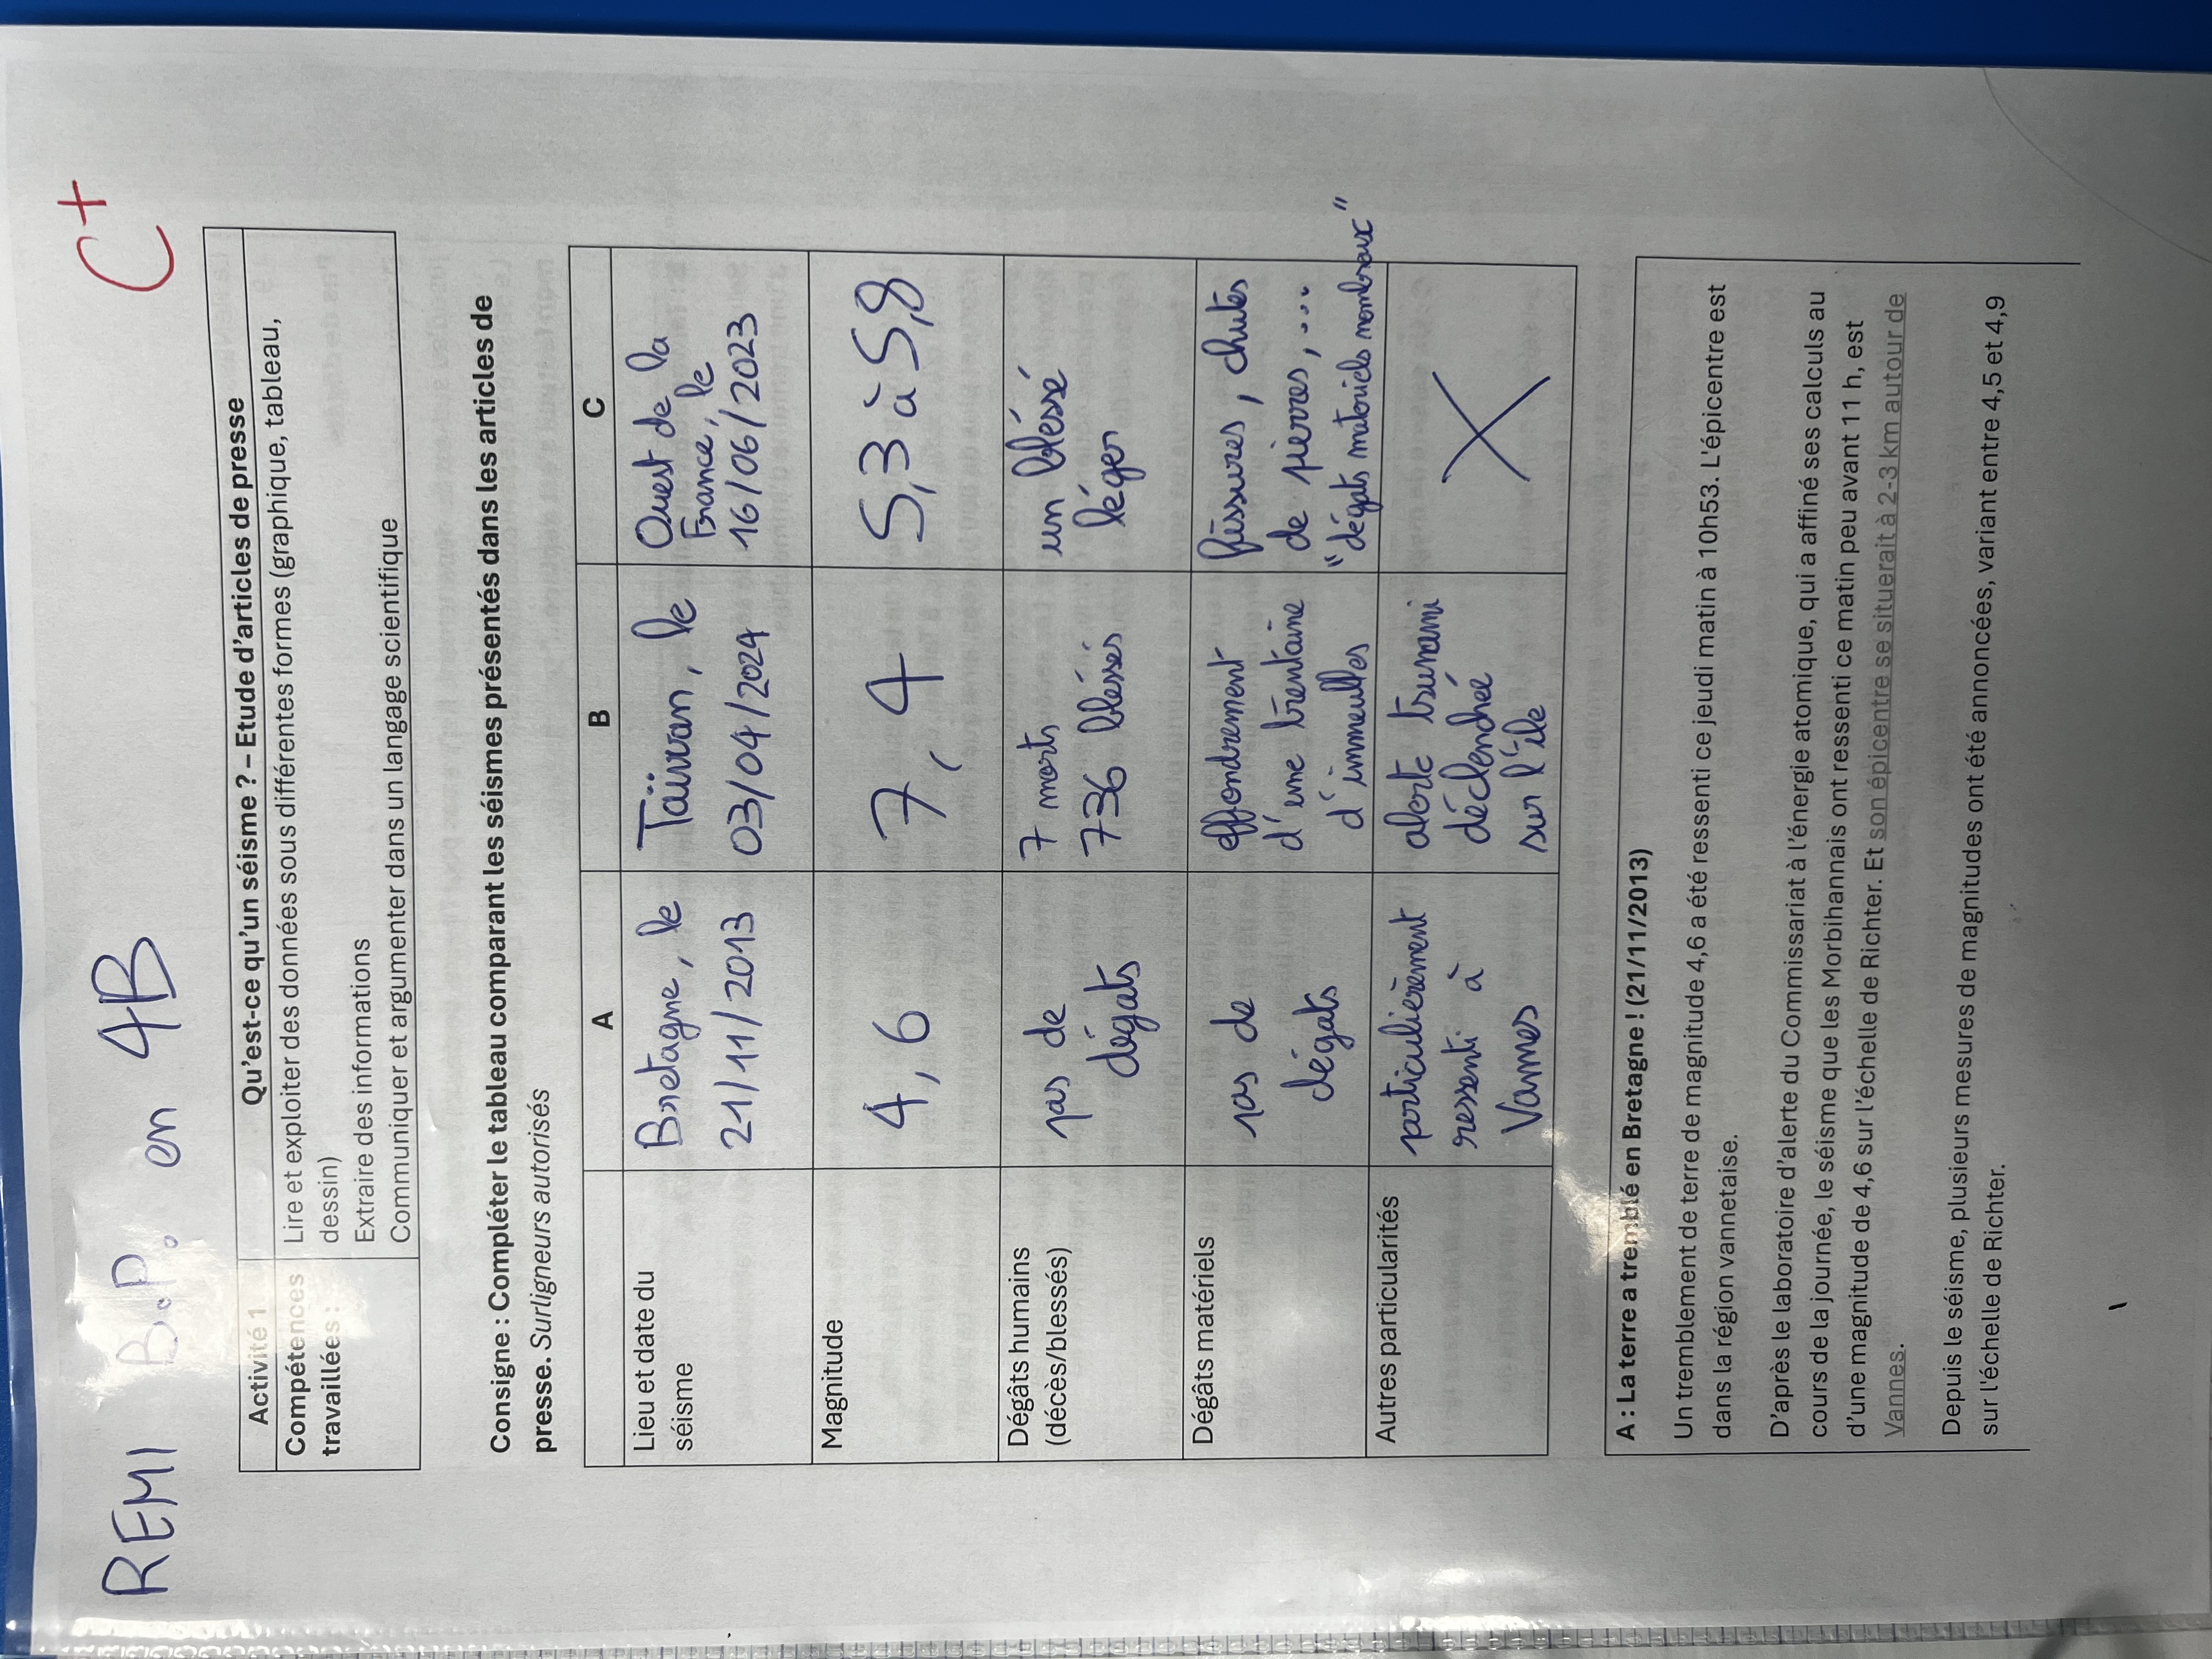 REMI B.P. en 4B
C+
Activité 1
Qu'est-ce qu'un séisme ? – Etude d'articles de presse
Compétences
travaillées :
Lire et exploiter des données sous différentes formes (graphique, tableau,
dessin)
Extraire des informations
Communiquer et argumenter dans un langage scientifique
Consigne : Compléter le tableau comparant les séismes présentés dans les articles de
presse. Surligneurs autorisés
A
B
C
Lieu et date du
séisme
Bretagne, le
21/11/2013
Taïwan, le
03/04/2024
Ouest de la
France, le
16/06/2023
Magnitude
4,6
7,4
5,3 à 5,8
Dégâts humains
(décès/blessés)
pas de
dégats
7 morts
736 blésses
un bléssé
léger
Dégâts matériels
pas de
dégats
effondrement
d'une trentaine
d'immeulles
fissures, chutes
de pierres, ...
"dégats matériels nombraux"
Autres particularités
particulièrement
ressenti à
Vannes
alerte tsunami
déclenchée
sur l'île
X
A : La terre a tremblé en Bretagne ! (21/11/2013)
Un tremblement de terre de magnitude 4,6 a été ressenti ce jeudi matin à 10h53. L'épicentre est
dans la région vannetaise.
D'après le laboratoire d'alerte du Commissariat à l'énergie atomique, qui a affiné ses calculs au
cours de la journée, le séisme que les Morbihannais ont ressenti ce matin peu avant 11 h, est
d'une magnitude de 4,6 sur l'échelle de Richter. Et son épicentre se situerait à 2-3 km autour de
Vannes.
Depuis le séisme, plusieurs mesures de magnitudes ont été annoncées, variant entre 4,5 et 4,9
sur l'échelle de Richter.